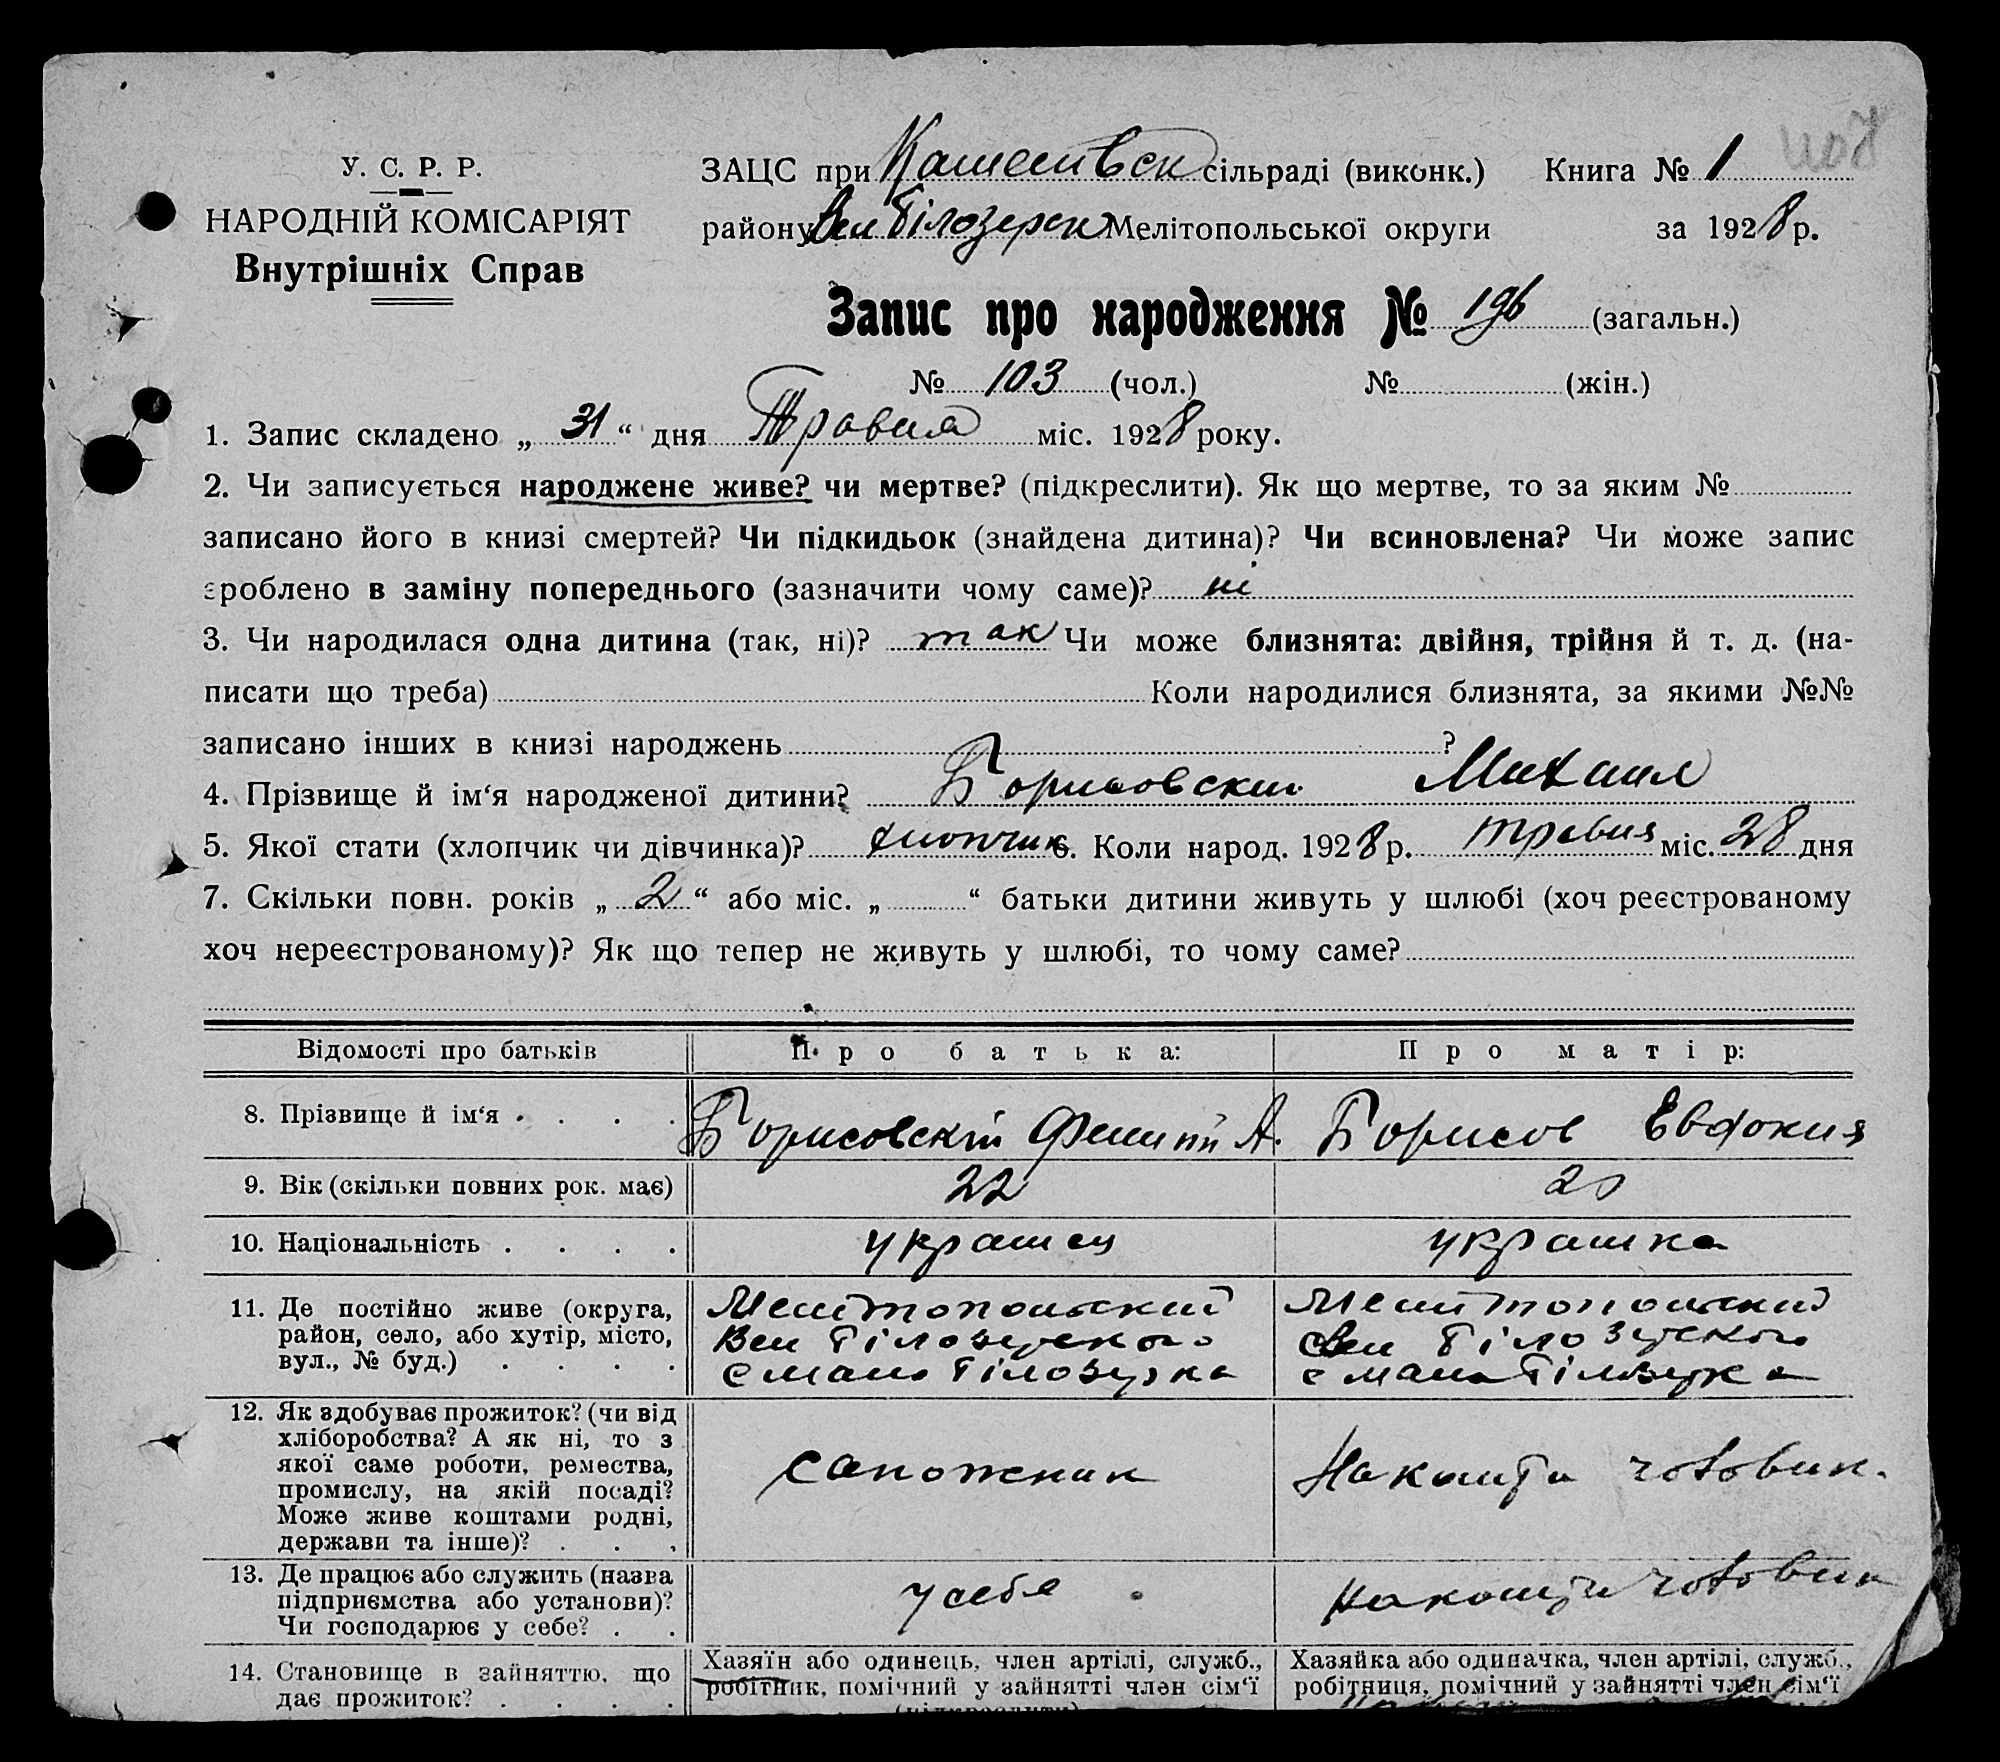 У. С. Р. Р.
НАРОДНІЙ КОМІСАРІЯТ
Внутрішніх Справ
ЗАЦС при сільраді (виконк.) Книга № 1
району Вел Білозерск Мелітопольської округи за 1928 р.
Запис про народження № 196 (загальн.)
№ 103 (чол.) № (жін.)
1. Запис складено „ 31 “ дня Травня міс. 1928 року.
2. Чи записується народжене живе? чи мертве? (підкреслити). Як що мертве, то за яким №
записано його в книзі смертей? Чи підкидьок (знайдена дитина)? Чи всиновлена? Чи може запис
зроблено в заміну попереднього (зазначити чому саме)? ні
3. Чи народилася одна дитина (так, ні)? так Чи може близнята: двійня, трійня й т. д. (на-
писати що треба) Коли народилися близнята, за якими №№
записано інших в книзі народжень ?
4. Прізвище й ім‘я народженої дитини? Борисовский Михаил
5. Якої стати (хлопчик чи дівчинка)? хлопчик 6. Коли народ. 1928 р. травня міс. 28 дня
7. Скільки повн. років „ 2 “ або міс. „ “ батьки дитини живуть у шлюбі (хоч реєстрованому
хоч нереєстрованому)? Як що тепер не живуть у шлюбі, то чому саме?
Відомості про батьків Про батька: Про матір:
8. Прізвище й ім‘я . . . . Борисовскій Филипп А. Борисов Евдокия
9. Вік (скільки повних рок. має) 22 20
10. Національність . . . . украинец украинка
11. Де постійно живе (округа,
район, село, або хутір, місто,
вул., № буд.) . . . .
Мелитопольский
Вел Білозурского
с мало Білозурка
Мелитопольский
Вел Білозурского
с мала Білозурка
12. Як здобуває прожиток? (чи від
хліборобства? А як ні, то з
якої саме роботи, ремества,
промислу, на якій посаді?
Може живе коштами родні,
держави та інше)? . . .
сапожник
На кошти чоловик.
13. Де працює або служить (назва
підприємства або установи)?
Чи господарює у себе? . .
у себя
на кошти чоловик
14. Становище в зайняттю, що
дає прожиток? . . . .
Хазяїн або одинець, член артілі, служб.,
робітник, помічний у зайнятті член сім‘ї
(підкреслити)
Хазяйка або одиначка, член артілі, служб.,
робітниця, помічний у зайнятті член сім‘ї